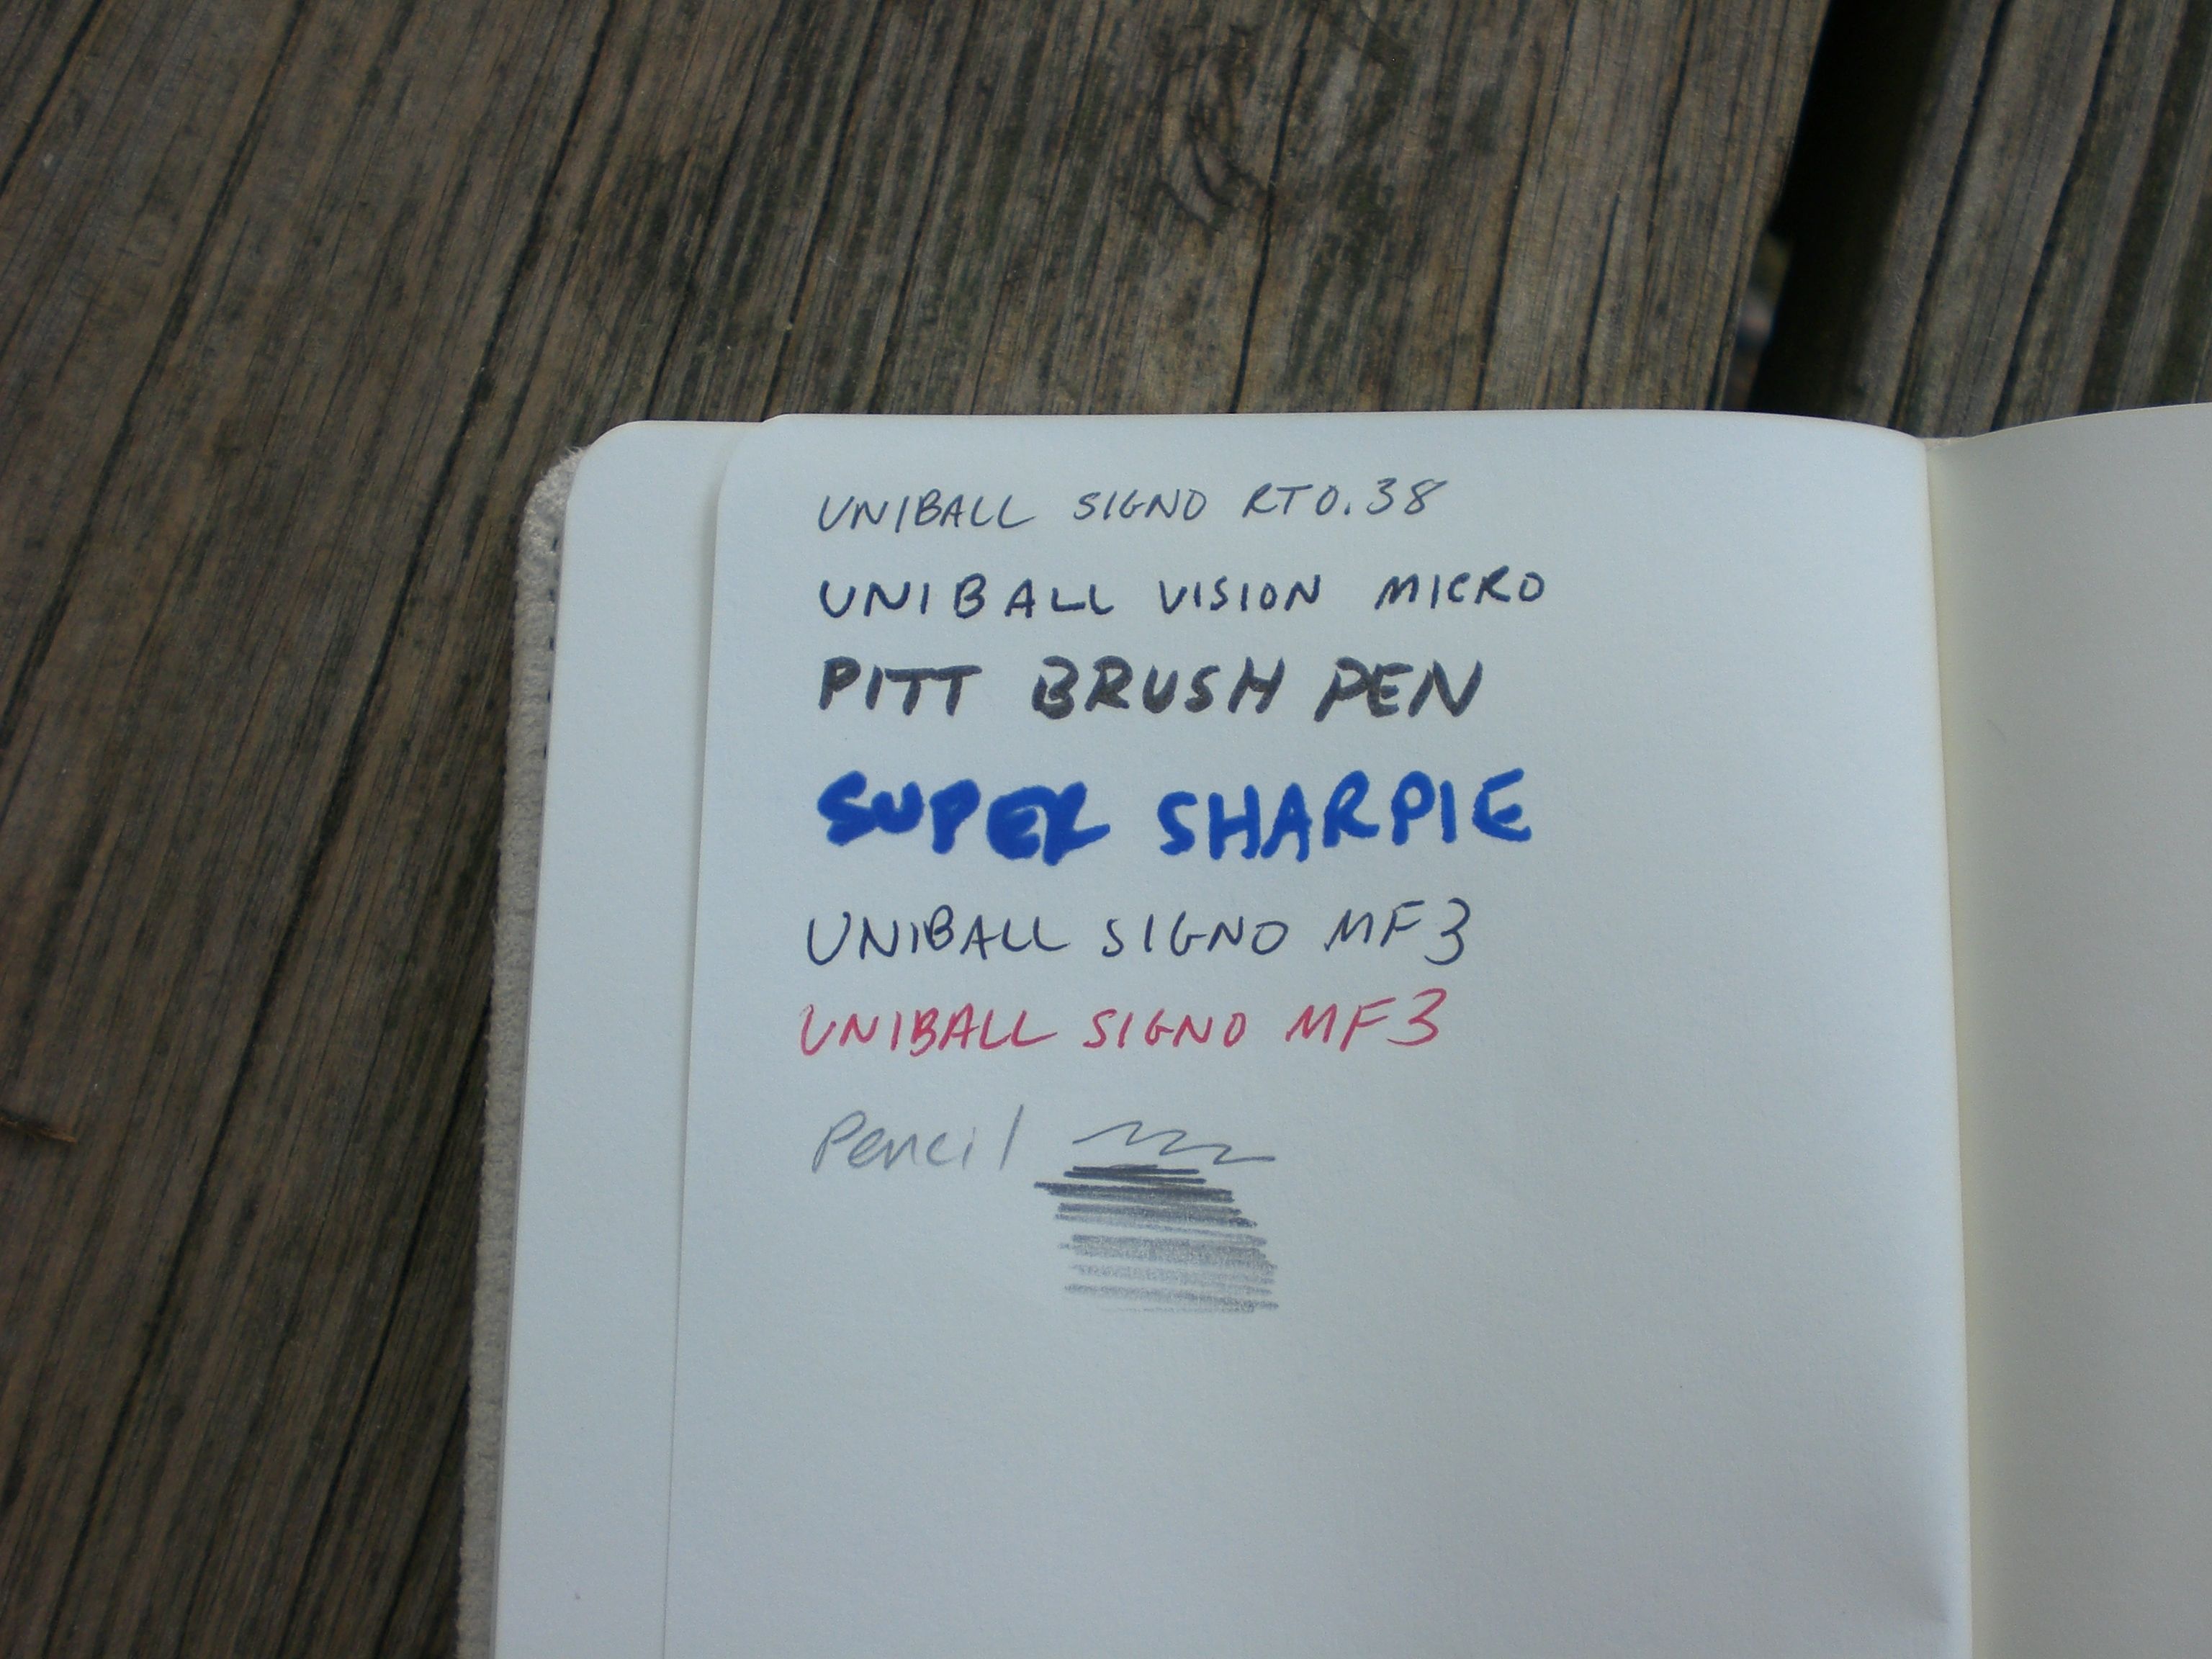 UNIBALL SIGNO RT0.38
UNIBALL VISION MICRO
PITT BRUSH PEN
SUPER SHARPIE
UNIBALL SIGNO MF3
UNIBALL SIGNO MF3
Pencil